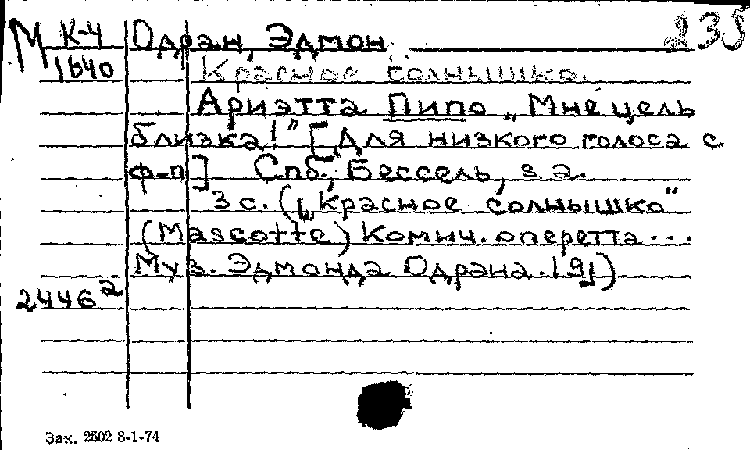 М К-4 Одран, Эдмон 235
1640 Красное солнышко.
Ариэтта Пипо „Мне цель
близка!" [Для низкого голоса с
ф-п] Спб., Бессель, з а.
3 с. („Красное солнышко"
(Mascotte) Комич. оперетта...
Муз. Эдмонда Одрана. |9|)
2446 а
Зак. 2502 8-1-74